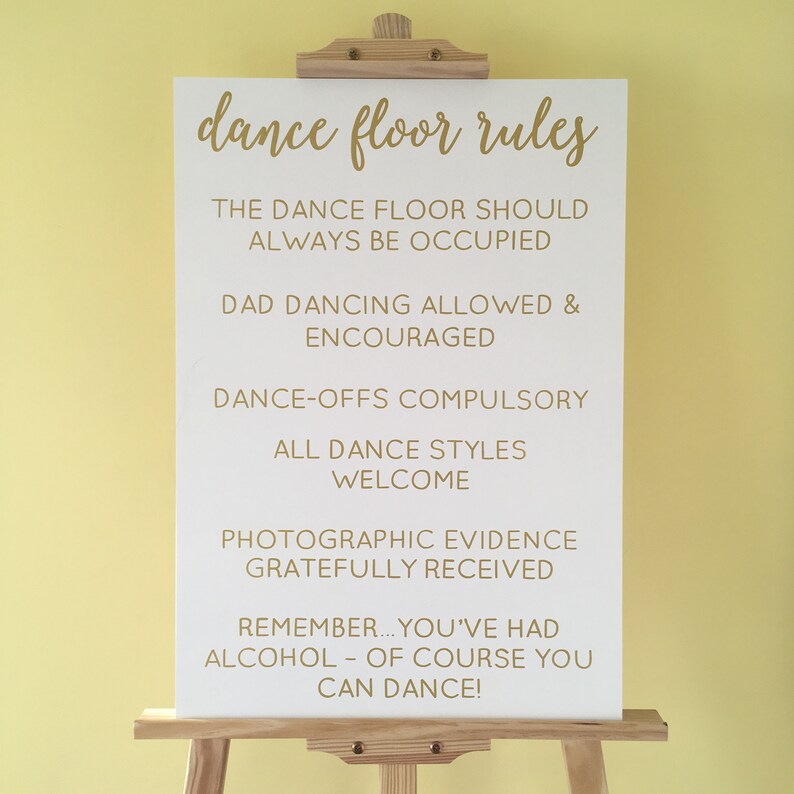 dance floor rules
THE DANCE FLOOR SHOULD
ALWAYS BE OCCUPIED
DAD DANCING ALLOWED &
ENCOURAGED
DANCE-OFFS COMPULSORY
ALL DANCE STYLES
WELCOME
PHOTOGRAPHIC EVIDENCE
GRATEFULLY RECEIVED
REMEMBER...YOU'VE HAD
ALCOHOL – OF COURSE YOU
CAN DANCE!